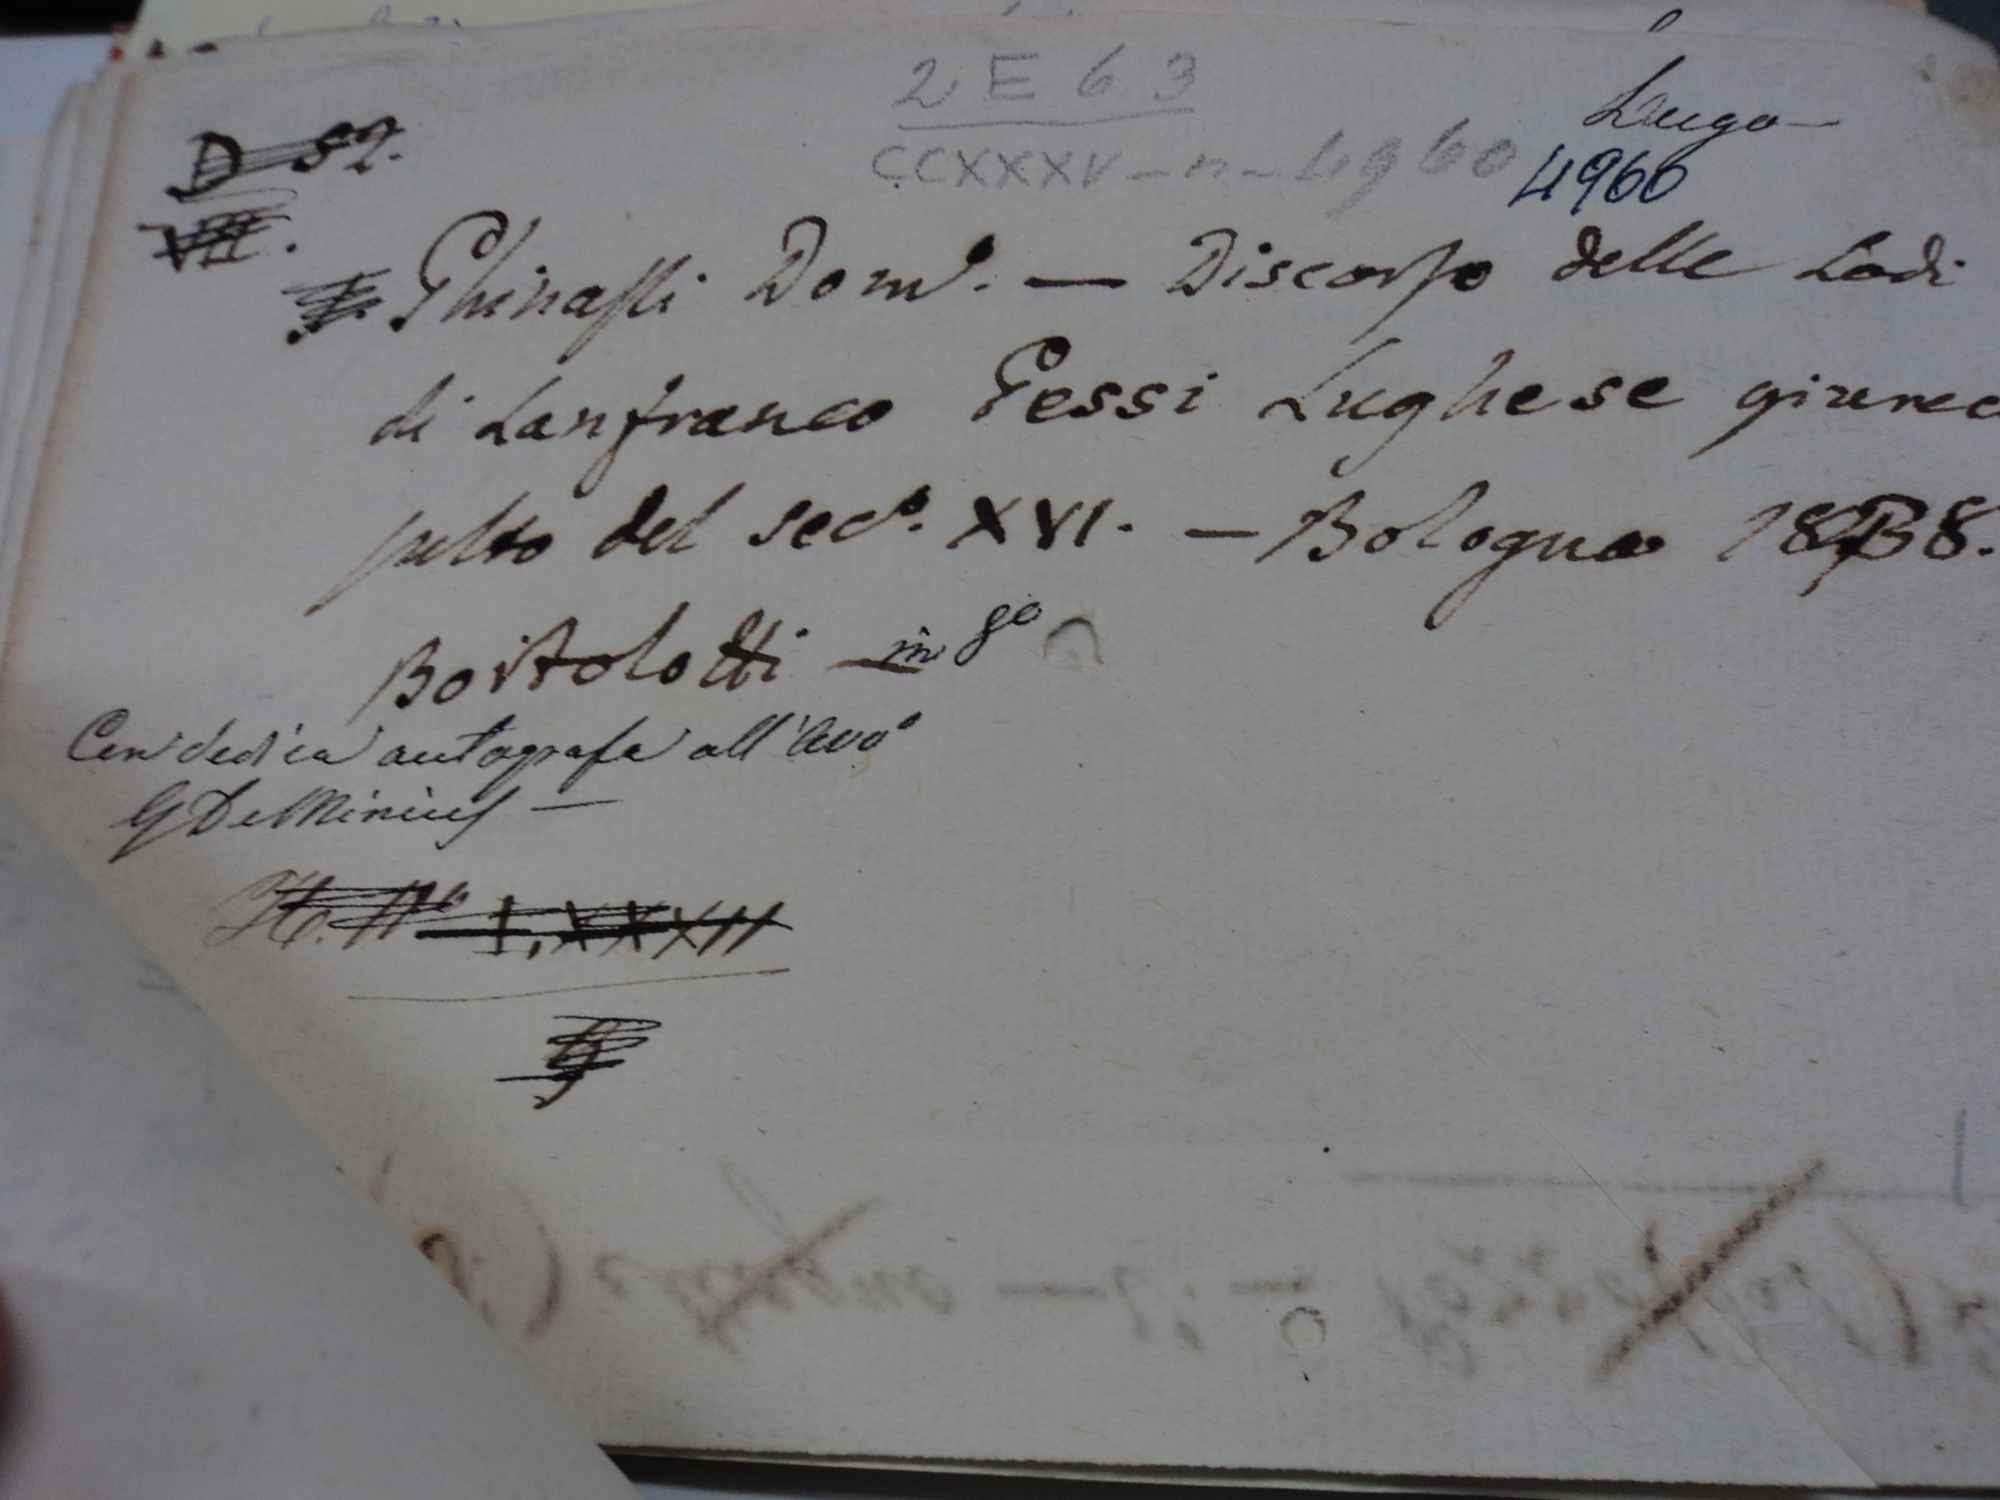 2 E 6 3
Lugo
D 52.
CCXXXV - n - 4960
4960
VII.
Ghinassi Dom.º — Discorso delle Lodi
di Lanfranco Gessi Lughese giurec
pulto del sec.º XVI. — Bologna 18 8.
Bortolotti in 8º
Con dedica autografa all'Avvº
G De Minicis —
H. Nº LXXXII